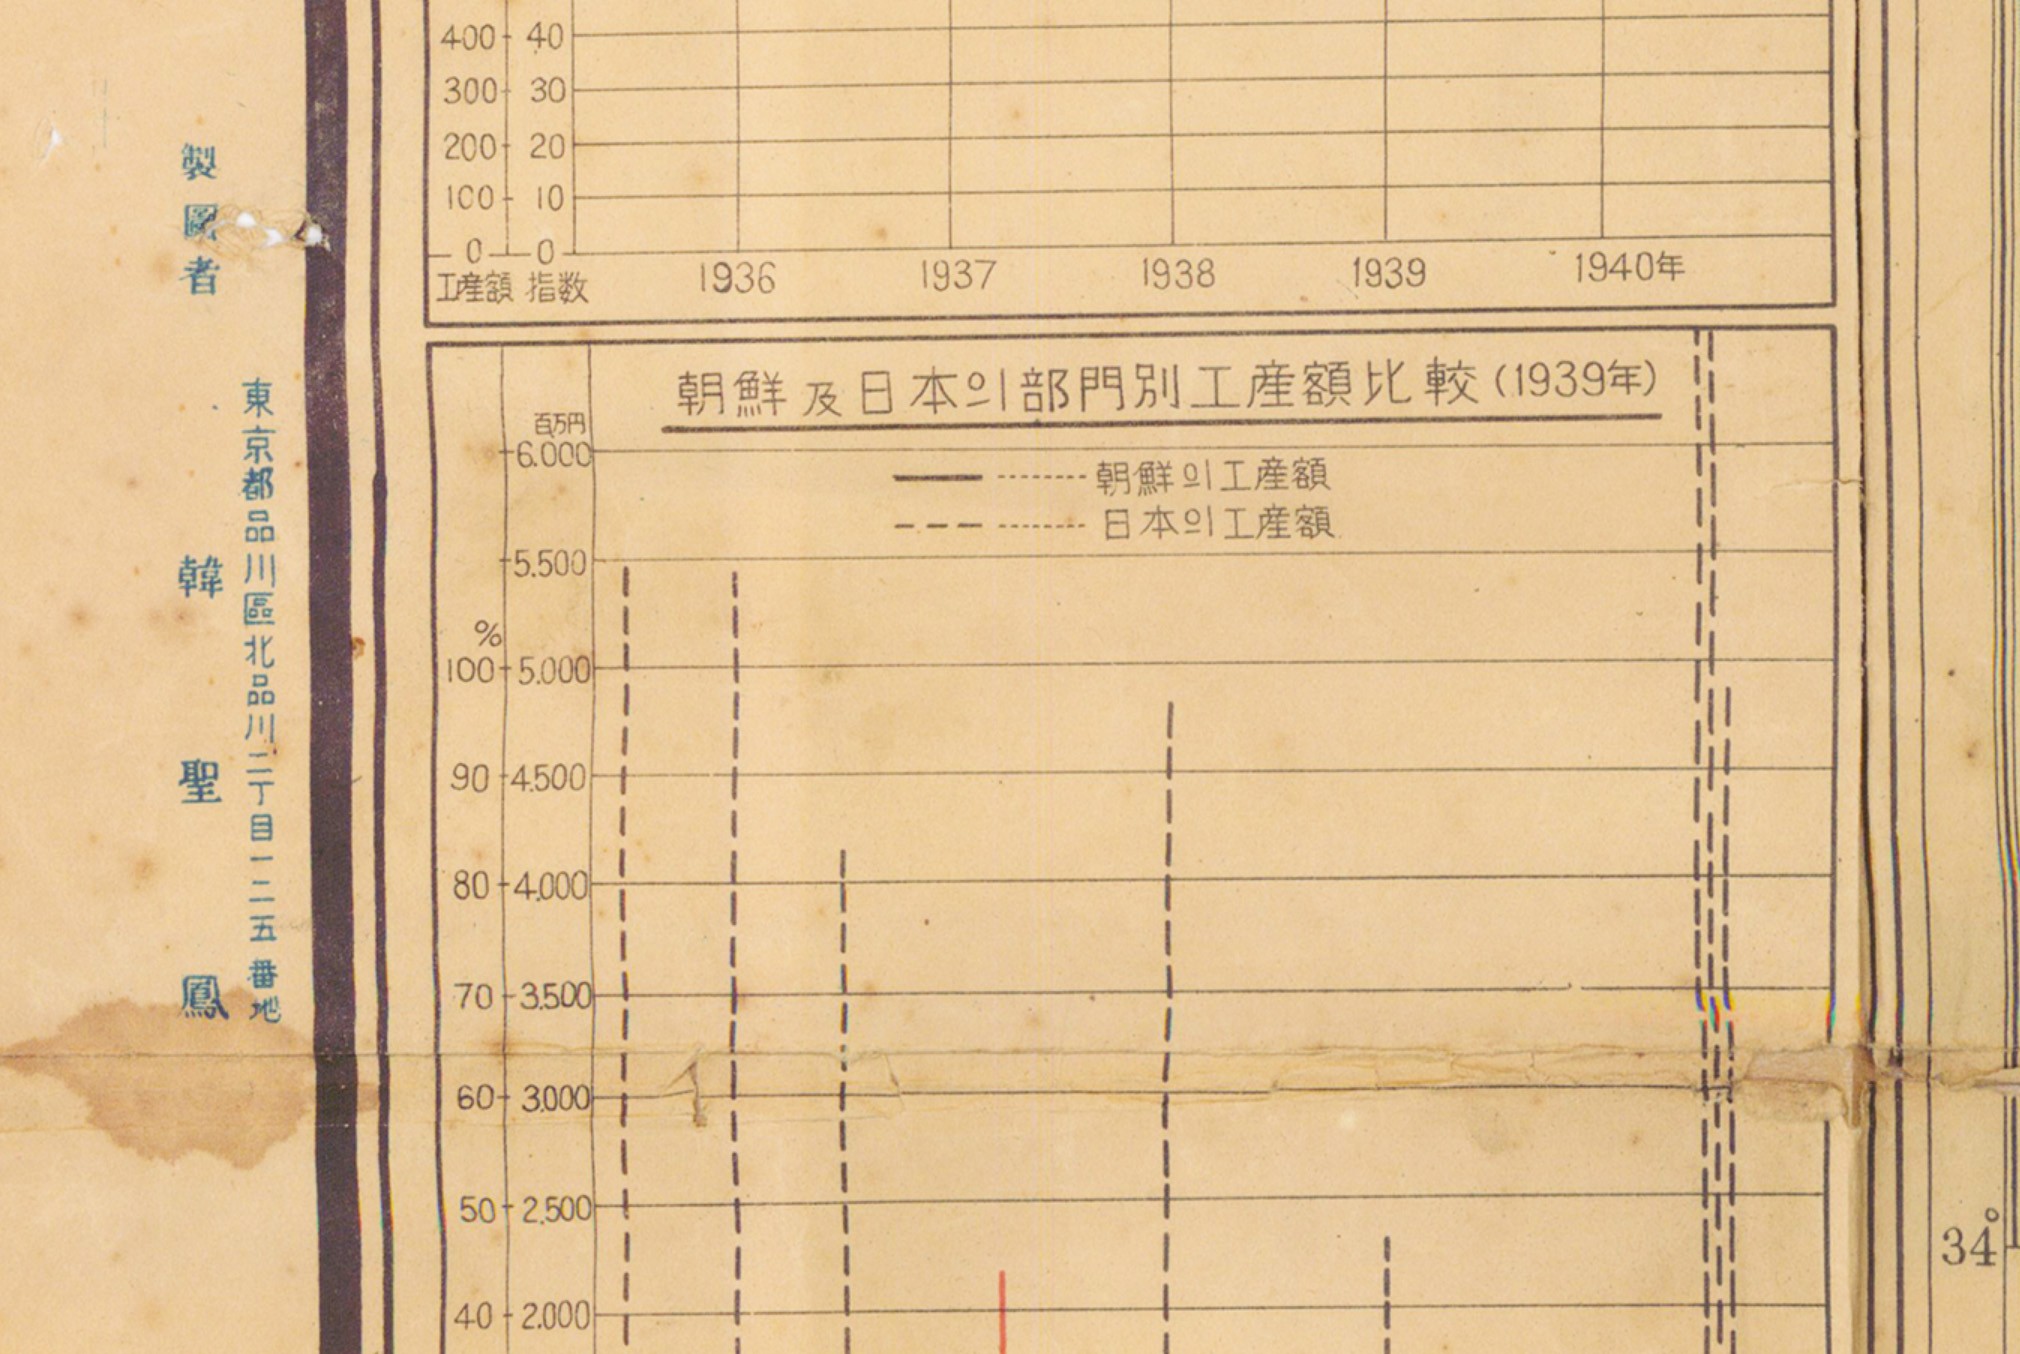 製圖者
韓聖鳳
東京都品川區北品川二丁目一二五番地
400 40
300 30
200 20
100 10
0 0
工産額 指数
1936 1937 1938 1939 1940年
朝鮮及日本의部門別工産額比較(1939年)
百万円
6.000
朝鮮의工産額
日本의工産額
5.500
%
100 5.000
90 4.500
80 4.000
70 3.500
60 3.000
50 2.500
40 2.000
34°